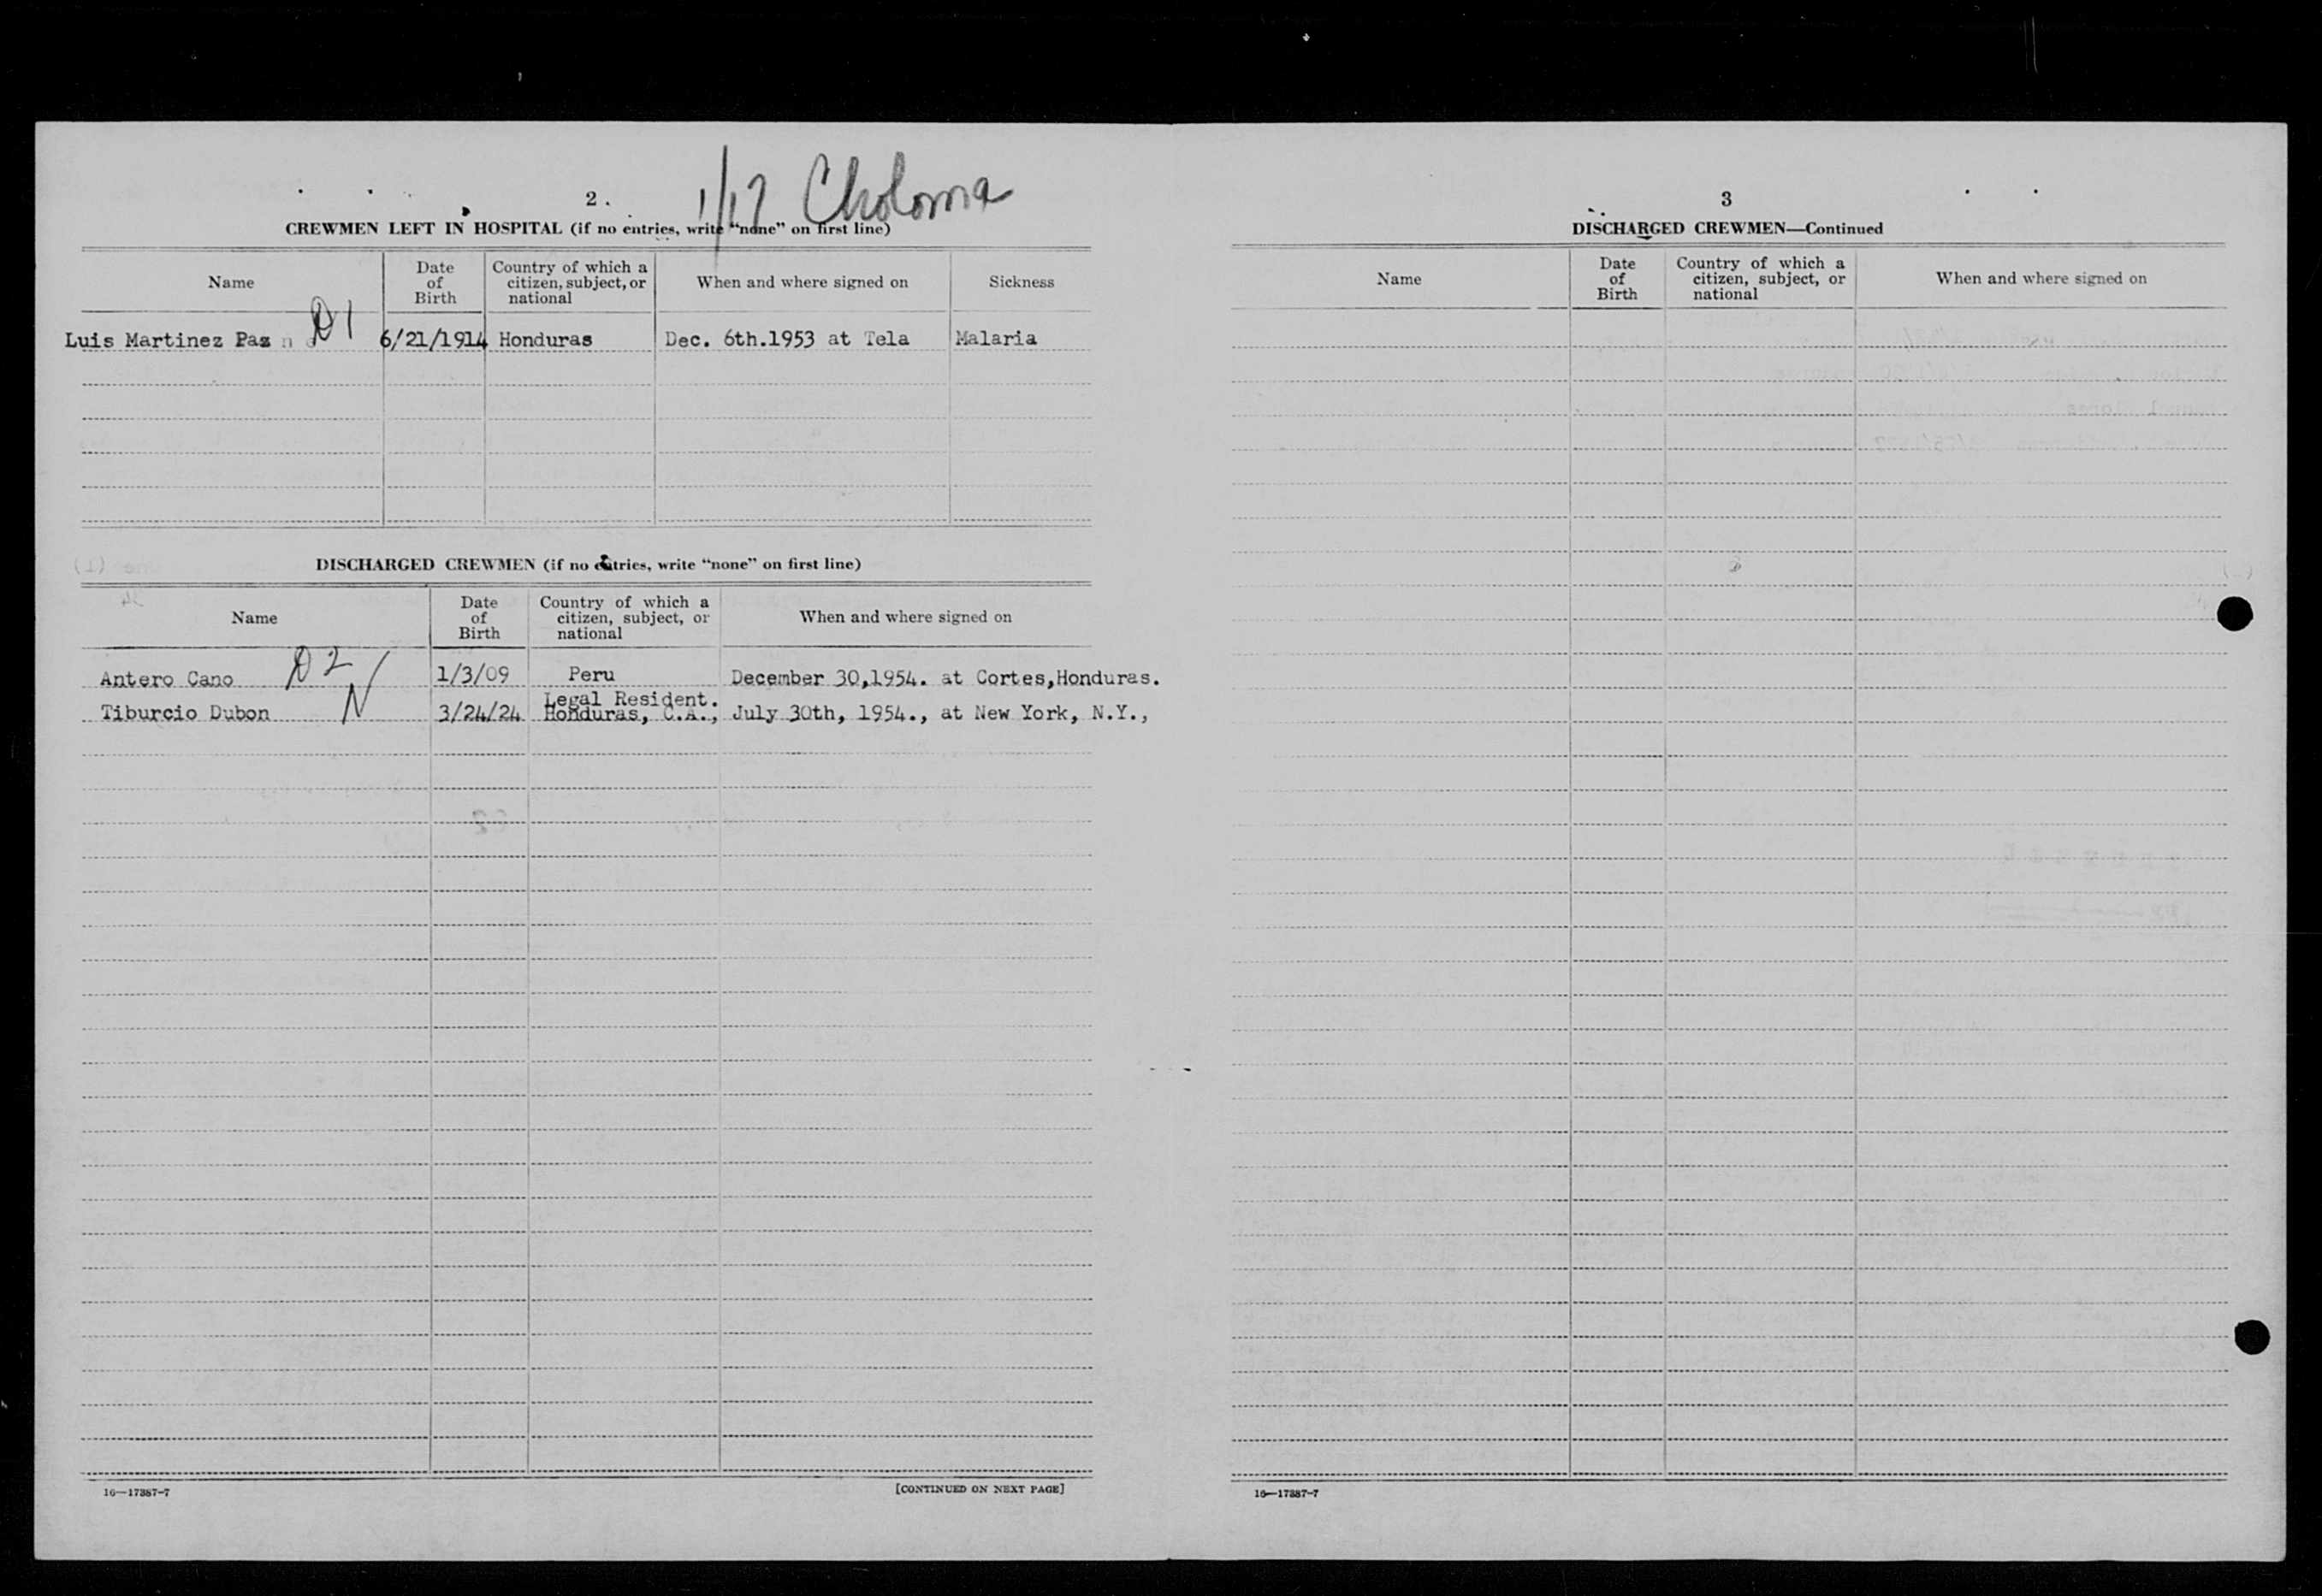 2.
1/17 Choloma
CREWMEN LEFT IN HOSPITAL (if no entries, write "none" on first line)
Name
Date of Birth
Country of which a citizen, subject, or national
When and where signed on
Sickness
Luis Martinez Paz D1 6/21/1914 Honduras Dec. 6th.1953 at Tela Malaria
DISCHARGED CREWMEN (if no entries, write "none" on first line)
Name
Date of Birth
Country of which a citizen, subject, or national
When and where signed on
Antero Cano D2 1/3/09 Peru December 30,1954. at Cortes,Honduras.
Legal Resident.
Tiburcio Dubon N 3/24/24 Honduras, C.A., July 30th, 1954., at New York, N.Y.,
16—17387-7
[CONTINUED ON NEXT PAGE]
3
DISCHARGED CREWMEN—Continued
Name
Date of Birth
Country of which a citizen, subject, or national
When and where signed on
16—17387-7